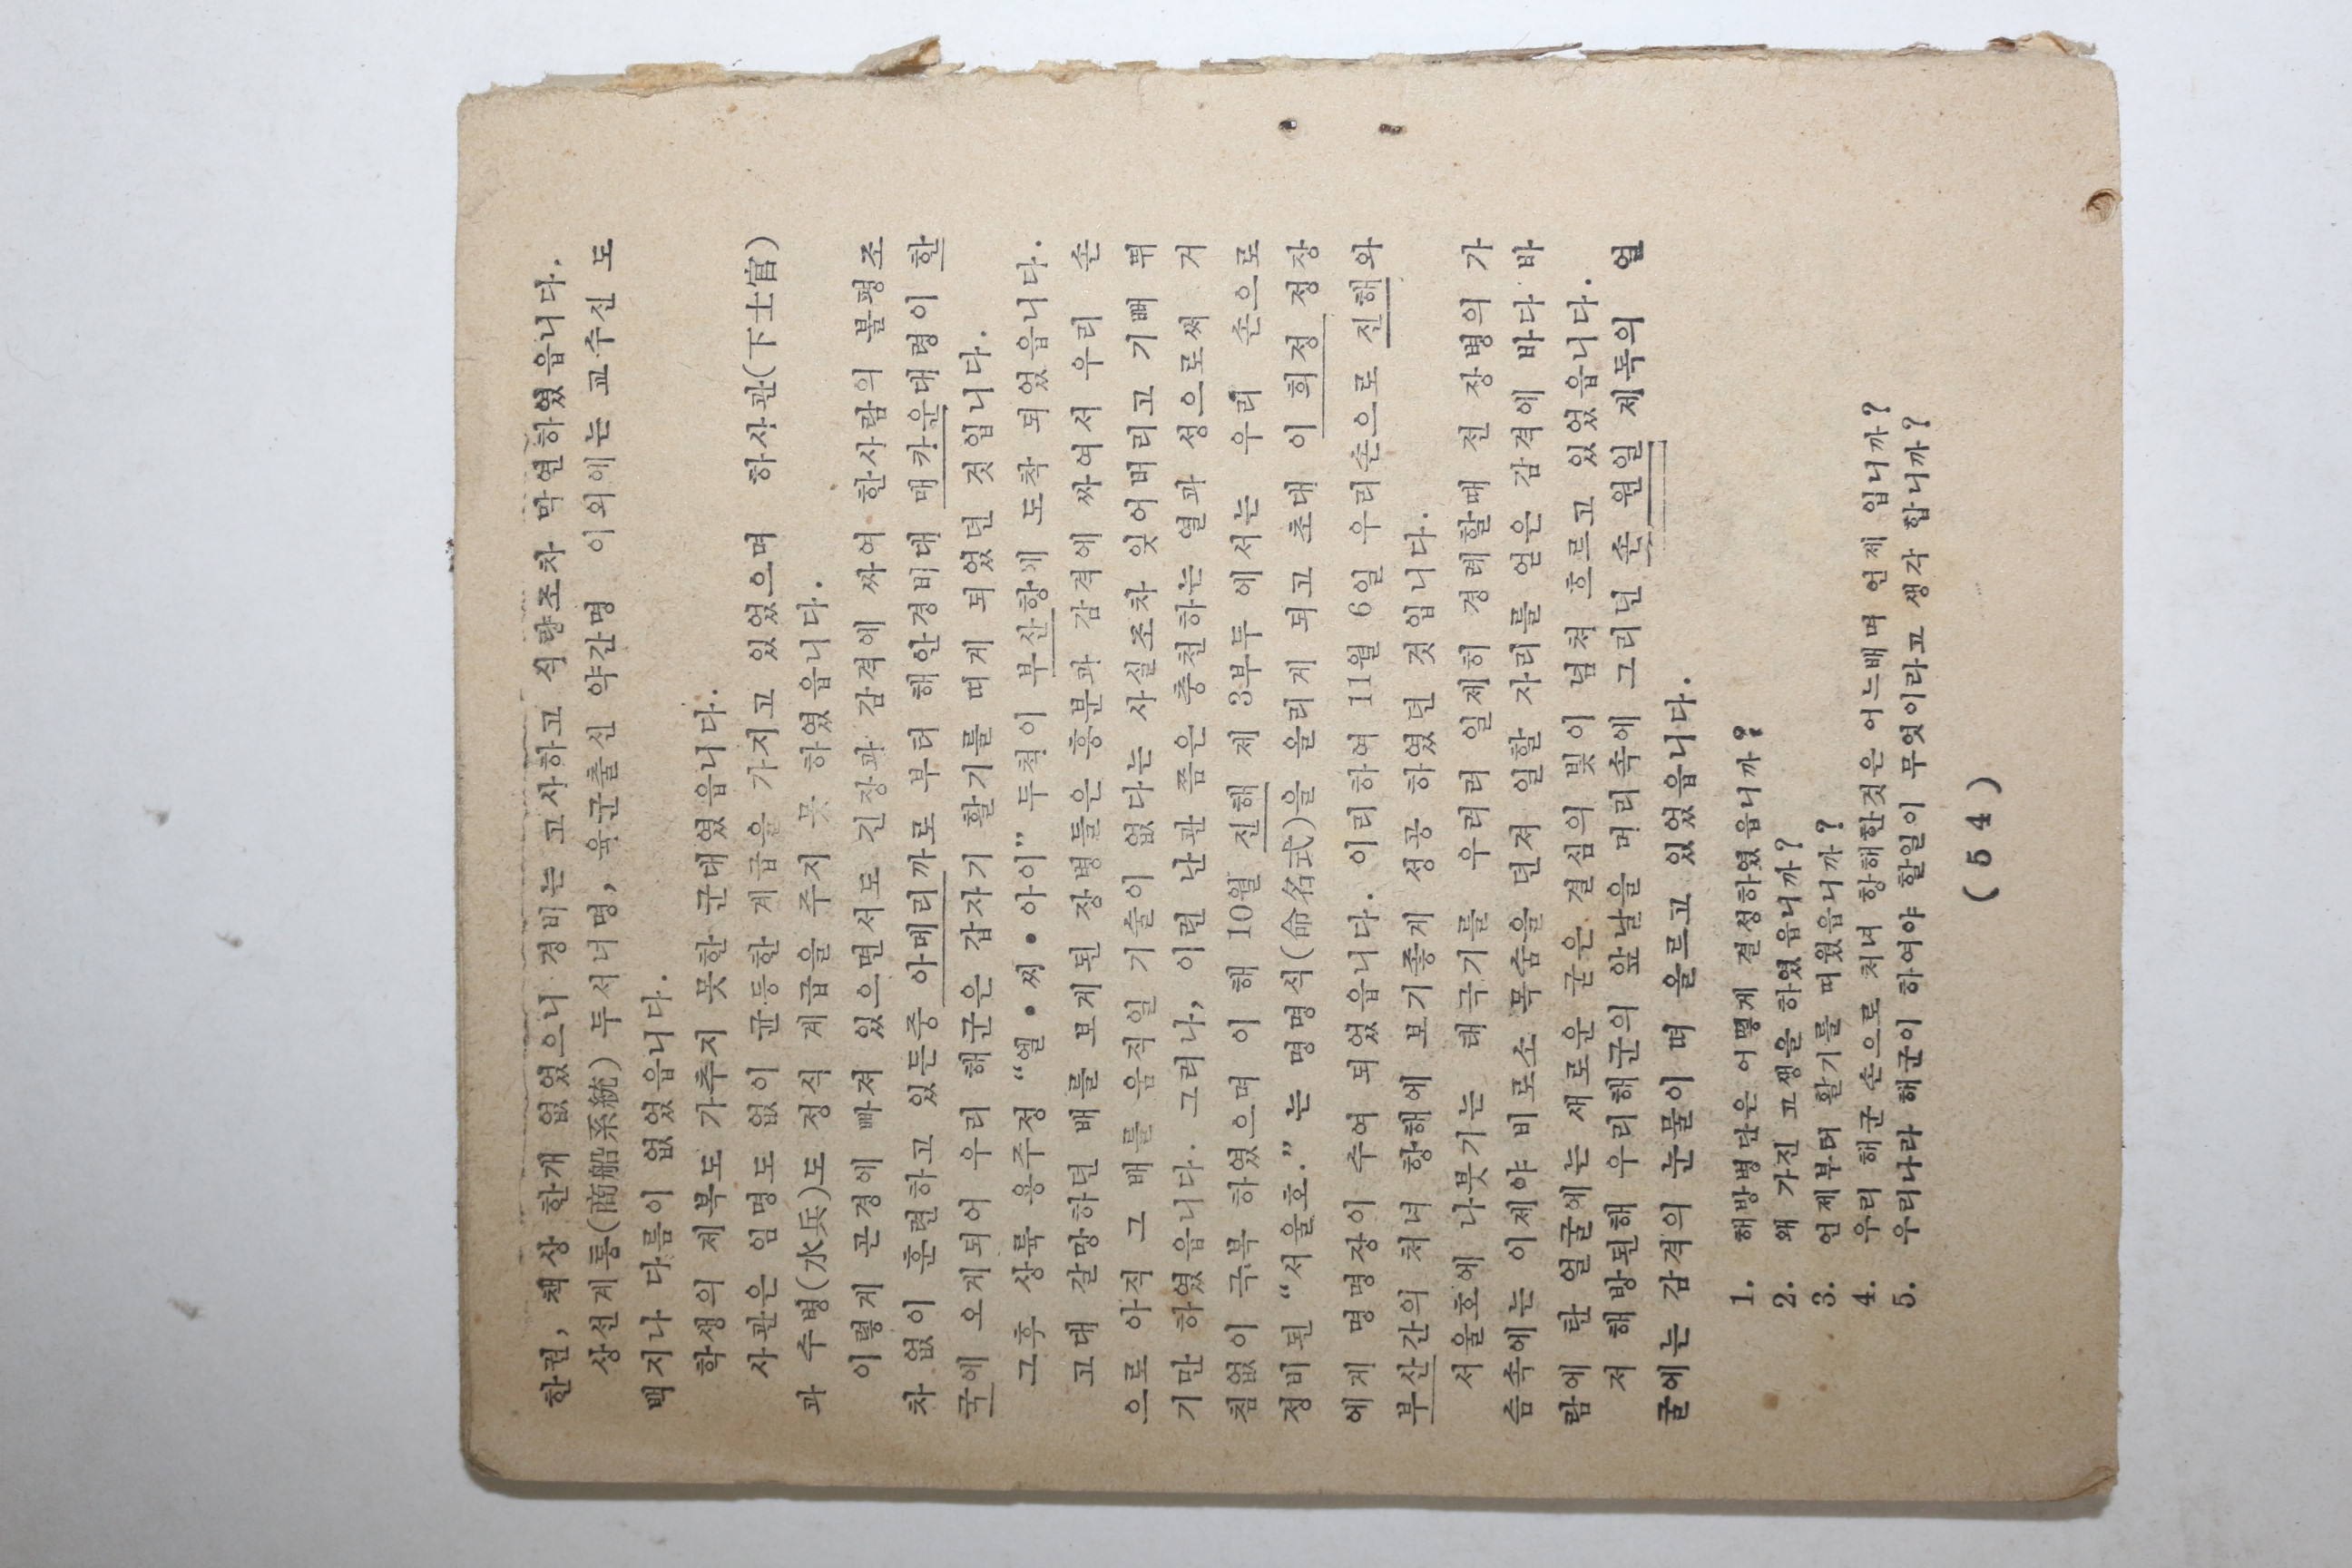 한권, 책상 한개 없었으니 경비는 고사하고 식량조차 막연하였읍니다.
상선계통(商船系統) 두서너명, 육군출신 약간명 이외에는 교수진 도
백지나 다름이 없었읍니다.
학생의 제복도 가추지 못한 군대였읍니다.
사관은 임명도 없이 균등한 계급을 가지고 있었으며 하사관(下士官)
과 수병(水兵)도 정식 계급을 주지 못 하였읍니다.
이렇게 곤경에 빠져 있으면서도 긴장과 감격에 싸여 한사람의 불평조
차 없이 훈련하고 있든중 아메리까로 부터 해안경비대 매카운대령이 한
국에 오게되어 우리 해군은 갑자기 활기를 띠게 되었던 것입니다.
그후 상륙 용주정 “엘•씨•아이” 두척이 부산항에 도착 되었읍니다.
고대 갈망하던 배를 보게된 장병들은 흥분과 감격에 싸여서 우리 손
으로 아직 그 배를 움직일 기술이 없다는 사실조차 잊어버리고 기뻐 뛰
기만 하였읍니다. 그러나, 이런 난관 쯤은 충천하는 열과 성으로써 거
침없이 극복 하였으며 이 해 10월 진해 제 3부두 에서는 우리 손으로
정비된 “서울호.” 는 명명식(命名式)을 올리게 되고 초대 이 희정 정장
에게 명명장이 수여 되었읍니다. 이리하여 11월 6일 우리손으로 진해와
부산간의 처녀 항해에 보기좋게 성공 하였던 것입니다.
서울호에 나붓기는 태극기를 우러러 일제히 경례할때 전 장병의 가
슴속에는 이제야 비로소 목숨을 던져 일할 자리를 얻은 감격에 바다 바
람에 탄 얼굴에는 새로운 굳은 결심의 빛이 넘쳐 흐르고 있었읍니다.
저 해방된해 우리해군의 앞날을 머리속에 그리던 손 원일 제독의 얼
굴에는 감격의 눈물이 떠 올르고 있었읍니다.
1. 해방병단은 어떻게 결성하였읍니까?
2. 왜 가진 고생을 하였읍니까?
3. 언제부터 활기를 띠웠읍니까?
4. 우리 해군 손으로 처녀 항해한것은 어느배며 언제 입니까?
5. 우리나라 해군이 하여야 할일이 무엇이라고 생각 합니까?
( 5 4 )